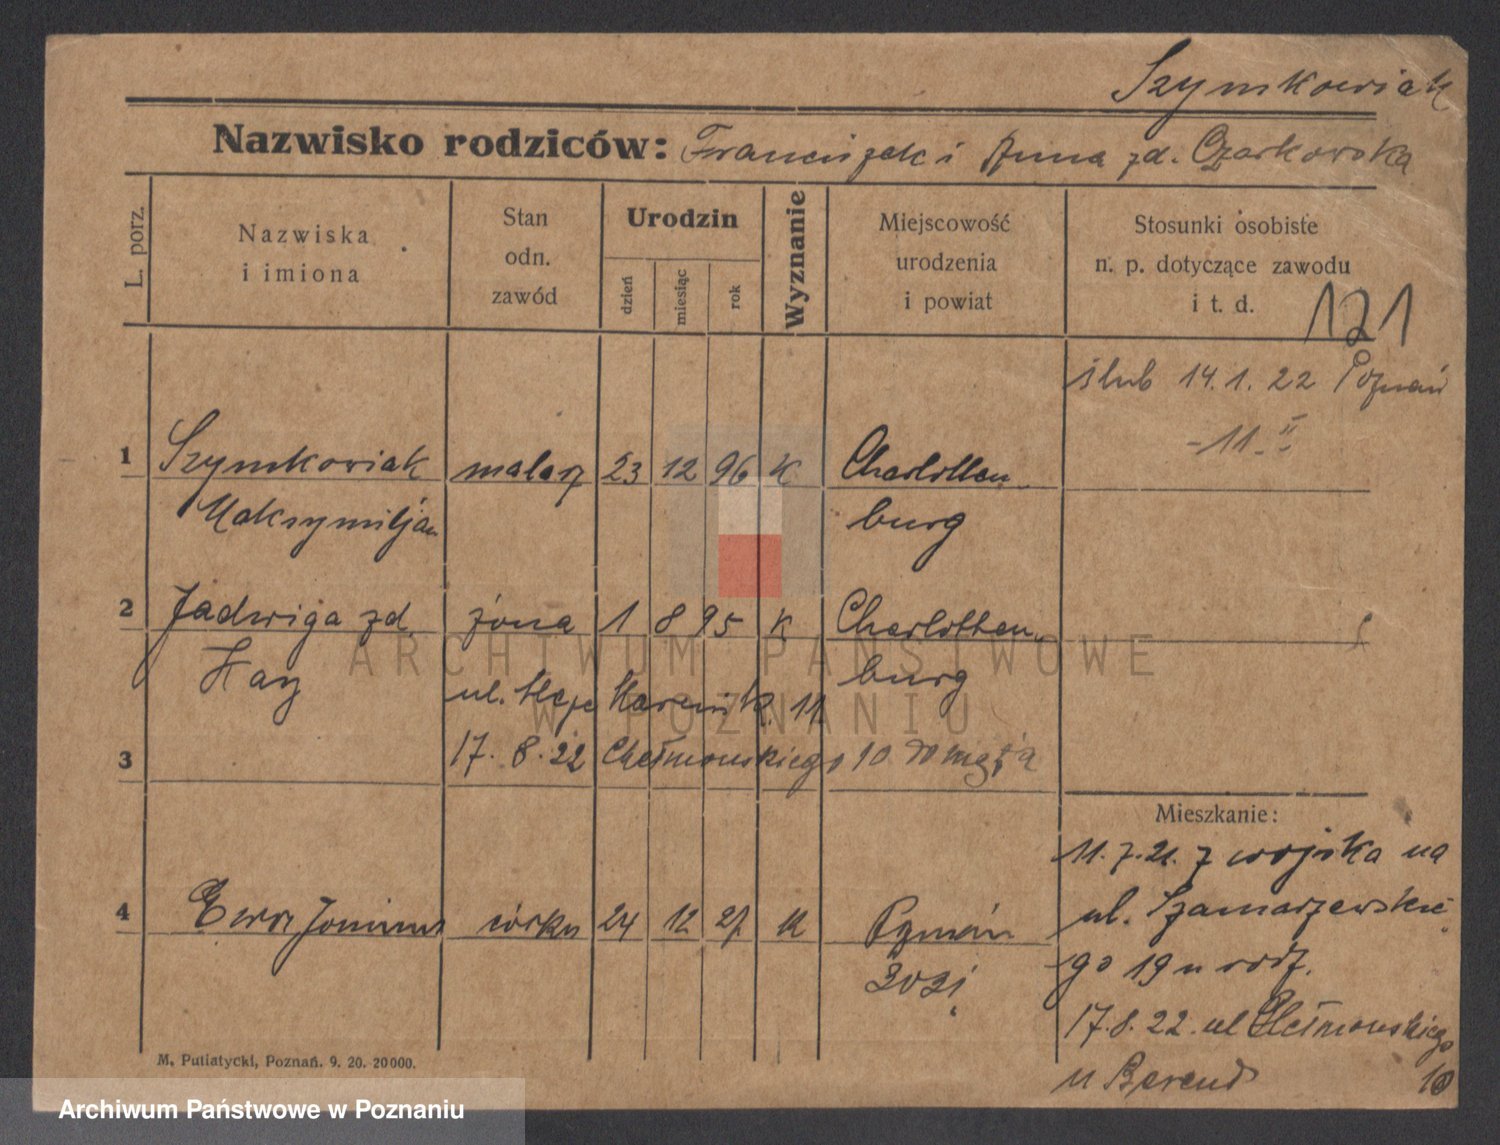 Szymkowiak
Nazwisko rodziców: Franciszek i Anna zd. Czarkowska
L. porz.
Nazwiska i imiona
Stan odn. zawód
Urodzin
dzień
miesiąc
rok
Wyznanie
Miejscowość urodzenia i powiat
Stosunki osobiste n. p. dotyczące zawodu i t. d.
121
ślub 14.1.22 Poznań
-11. II
1 Szymkowiak malarz 23 12 96 K Charlotten
Maksymiljan burg
2 Jadwiga zd. żona 1 8 95 K Charlotten
Kay burg
ul. 11
3 17.8.22 Chełmońskiego 10
Mieszkanie:
11.7.21. z wojska na
ul. Szamarzewskie
go 19 u rodz.
17.8.22 ul Chełmońskiego
u Berend 10
4 Ewa córka 24 12 K Poznań
M. Putiatycki, Poznań. 9. 20. 20000.
ARCHIWUM PAŃSTWOWE
W POZNANIU
Archiwum Państwowe w Poznaniu